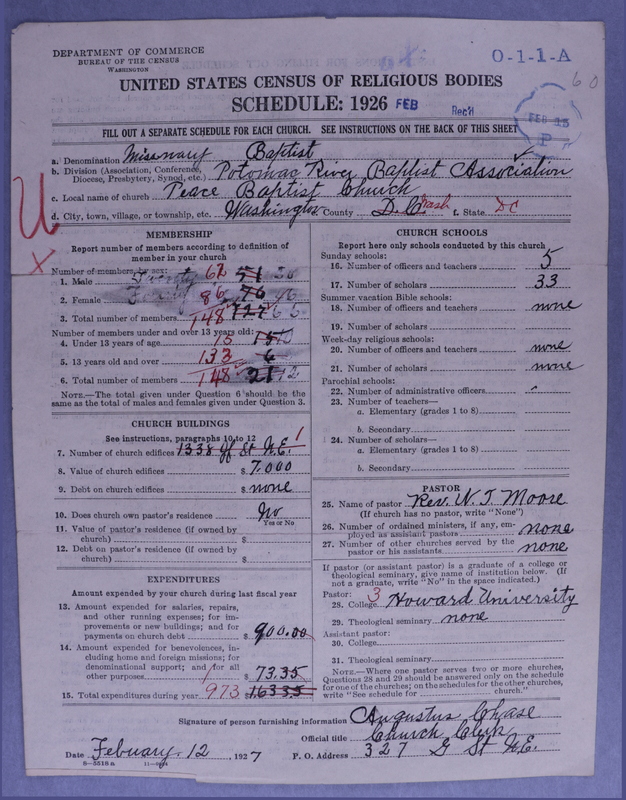 DEPARTMENT OF COMMERCE
BUREAU OF THE CENSUS
WASHINGTON
O-1-1-A
60
UNITED STATES CENSUS OF RELIGIOUS BODIES
SCHEDULE: 1926
FEB
Rec'd
FEB 15
P
FILL OUT A SEPARATE SCHEDULE FOR EACH CHURCH. SEE INSTRUCTIONS ON THE BACK OF THIS SHEET
a. Denomination Missnary Baptist
b. Division (Association, Conference, Diocese, Presbytery, Synod, etc.) Potomac River Baptist Association
c. Local name of church Peace Baptist Church
d. City, town, village, or township, etc. Washington County D.C. Wash f. State DC
MEMBERSHIP
Report number of members according to definition of
member in your church
Number of members by sex:
1. Male 62 51
2. Female 86 76
3. Total number of members 148 127
Number of members under and over 13 years old:
4. Under 13 years of age 15 15
5. 13 years old and over 133 6
6. Total number of members 148 21
NOTE.—The total given under Question 6 should be the
same as the total of males and females given under Question 3.
CHURCH BUILDINGS
See instructions, paragraphs 10 to 12
7. Number of church edifices 1338 St N.E. 1
8. Value of church edifices $ 7,000
9. Debt on church edifices $ none
10. Does church own pastor's residence No
Yes or No
11. Value of pastor's residence (if owned by
church) $
12. Debt on pastor's residence (if owned by
church) $
EXPENDITURES
Amount expended by your church during last fiscal year
13. Amount expended for salaries, repairs,
and other running expenses; for im-
provements or new buildings; and for
payments on church debt $ 900.00
14. Amount expended for benevolences, in-
cluding home and foreign missions; for
denominational support; and for all
other purposes $ 73.35
15. Total expenditures during year 973 $ 1633.5
CHURCH SCHOOLS
Report here only schools conducted by this church
Sunday schools:
16. Number of officers and teachers 5
17. Number of scholars 33
Summer vacation Bible schools:
18. Number of officers and teachers none
19. Number of scholars
Week-day religious schools:
20. Number of officers and teachers none
21. Number of scholars none
Parochial schools:
22. Number of administrative officers
23. Number of teachers—
a. Elementary (grades 1 to 8)
b. Secondary
24. Number of scholars—
a. Elementary (grades 1 to 8)
b. Secondary
PASTOR
25. Name of pastor Rev. W. T. Moore
(If church has no pastor, write "None")
26. Number of ordained ministers, if any, em-
ployed as assistant pastors none
27. Number of other churches served by the
pastor or his assistants none
If pastor (or assistant pastor) is a graduate of a college or
theological seminary, give name of institution below. (If
not a graduate, write "No" in the space indicated.)
Pastor:
28. College 3 Howard University
29. Theological seminary none
Assistant pastor:
30. College
31. Theological seminary
NOTE.—Where one pastor serves two or more churches,
Questions 28 and 29 should be answered only on the schedule
for one of the churches; on the schedules for the other churches,
write "See schedule for church."
Signature of person furnishing information Augustus Chase
Official title Church Clerk
Date February 12, 1927 P. O. Address 327 G St N.E.